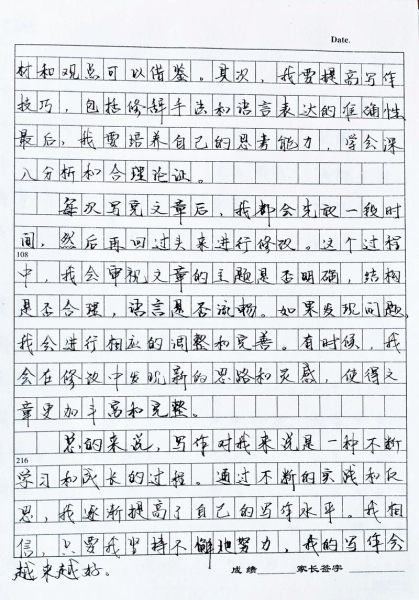 Date.
材和观点可以借鉴。其次，我要提高写作
技巧，包括修辞手法和语言表达的准确性
最后，我要培养自己的思考能力，学会深
入分析和合理论证。
每次写完文章后，我都会先放一段时
间，然后再回过头来进行修改。这个过程
108
中，我会审视文章的主题是否明确，结构
是否合理，语言是否流畅。如果发现问题，
我会进行相应的调整和完善。有时候，我
会在修改中发现新的思路和灵感，使得文
章更加丰富和完整。
总的来说，写作对我来说是一种不断
216
学习和成长的过程。通过不断的实践和反
思，我逐渐提高了自己的写作水平。我相
信，只要我坚持不懈地努力，我的写作会
越来越好。 成绩 家长签字